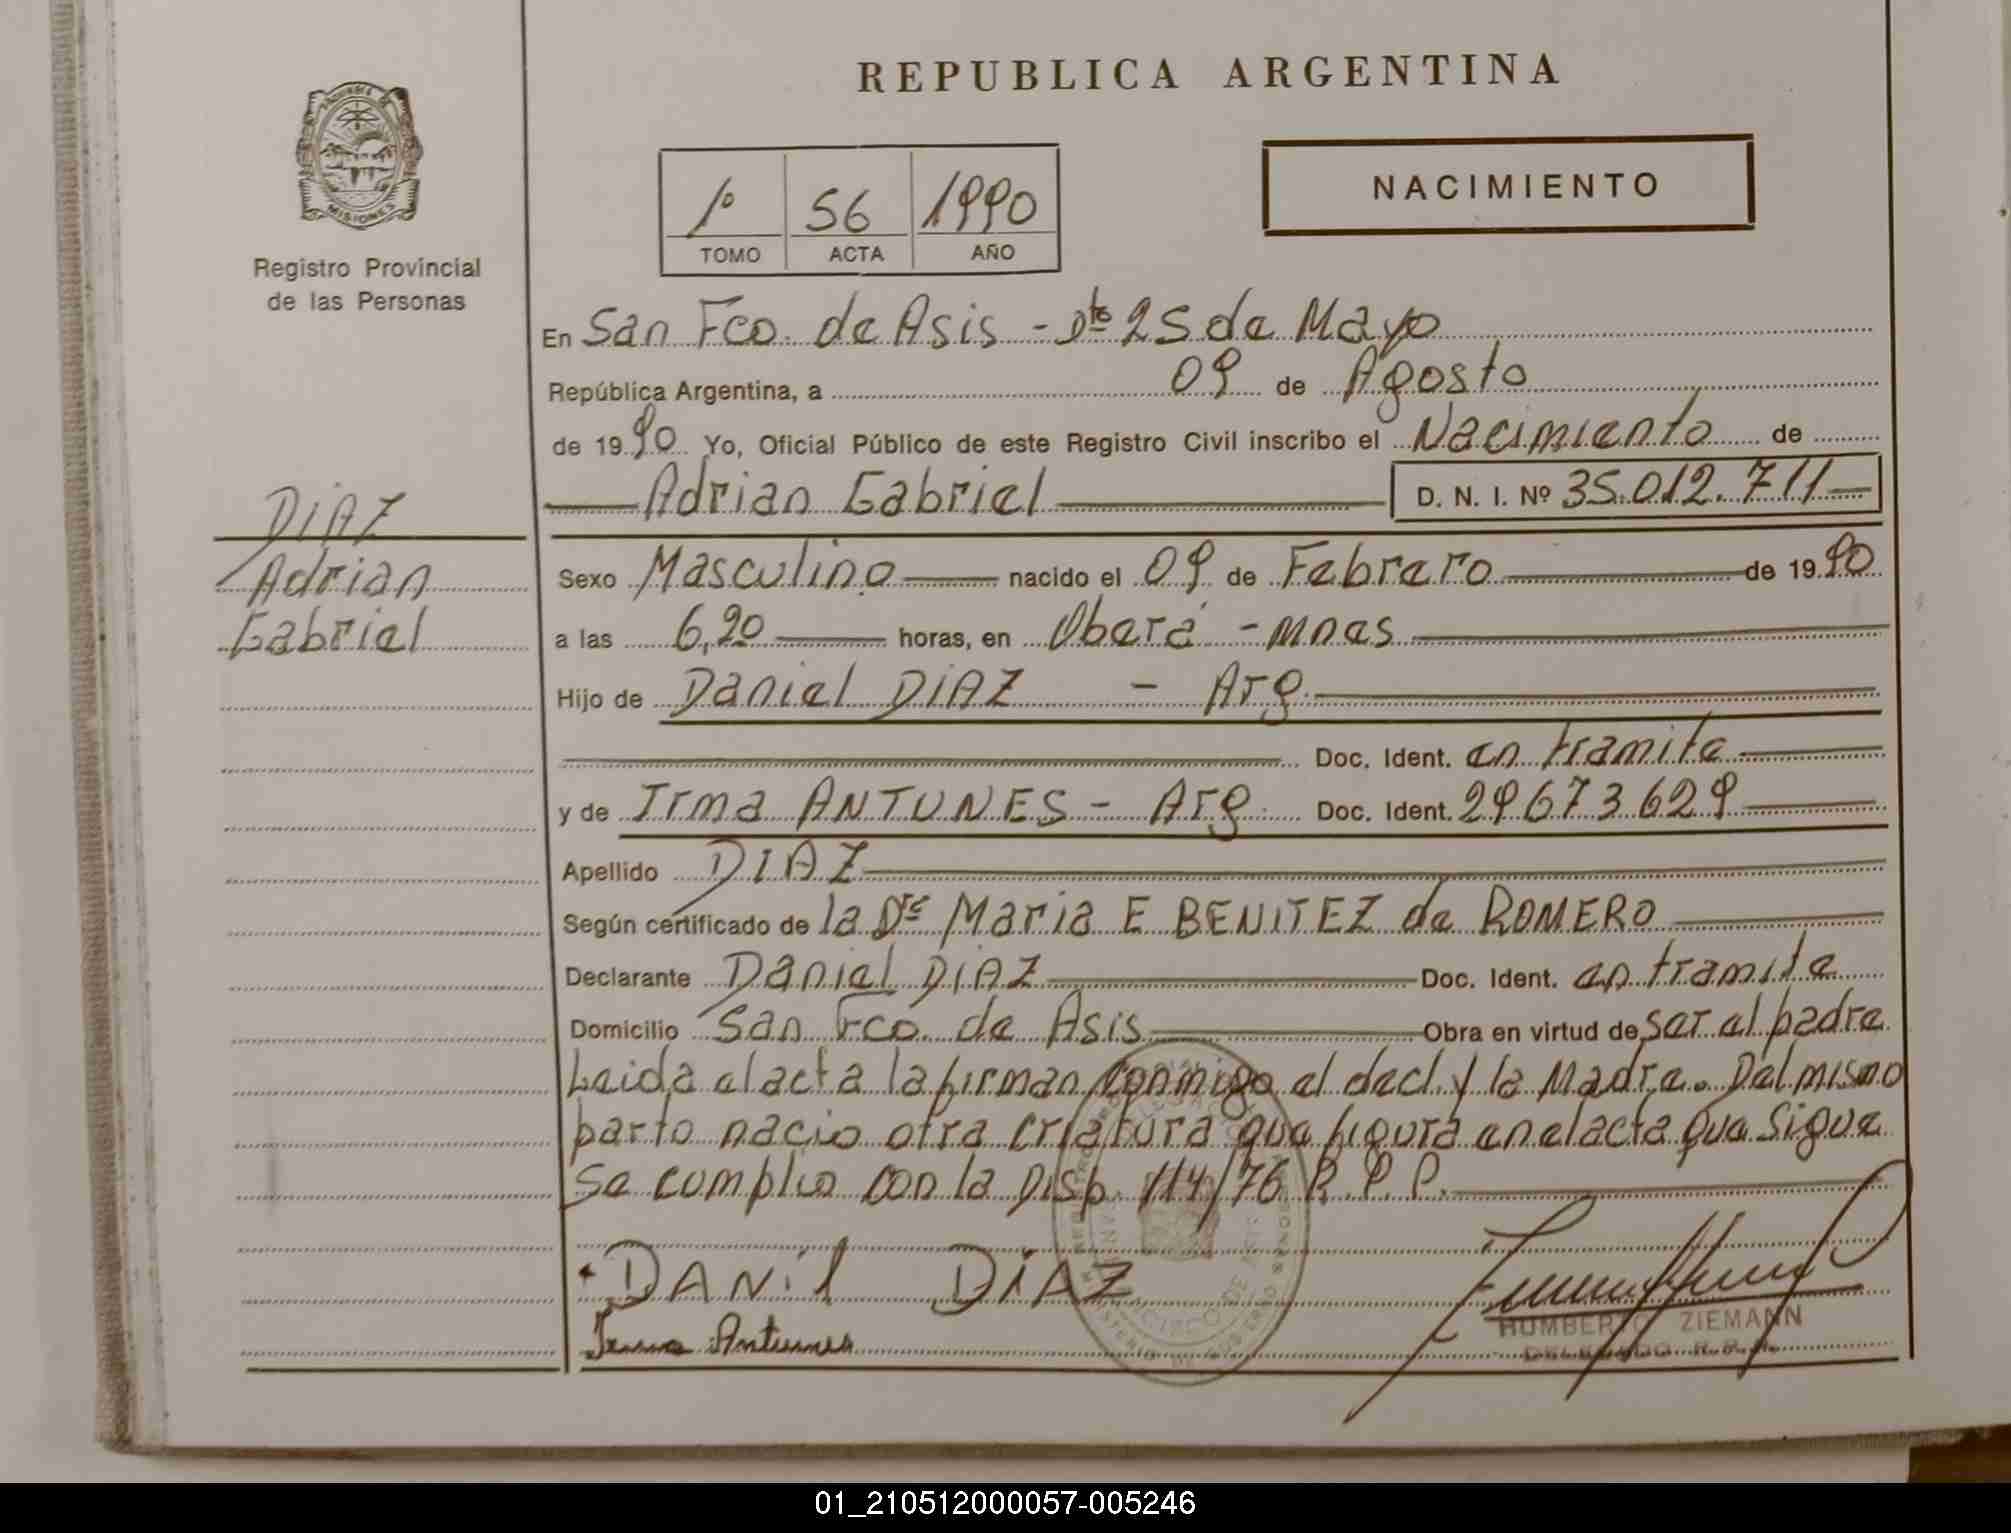 REPUBLICA ARGENTINA
PROVINCIA DE
MISIONES
Registro Provincial
de las Personas
1º 56 1990
TOMO ACTA AÑO
NACIMIENTO
En San Fco. de Asis - Dto 25 de Mayo
República Argentina, a 09 de Agosto
de 1990 Yo, Oficial Público de este Registro Civil inscribo el Nacimiento de
Adrian Gabriel D. N. I. Nº 35.012.711
DIAZ
Adrian
Gabriel
Sexo Masculino nacido el 09 de Febrero de 1990
a las 6,20 horas, en Oberá - Mnes
Hijo de Daniel DIAZ - Arg.
Doc. Ident. en tramite
y de Irma ANTUNES - Arg. Doc. Ident. 29673629
Apellido DIAZ
Según certificado de la Dra Maria E BENITEZ de ROMERO
Declarante Daniel DIAZ Doc. Ident. en tramite
Domicilio San Fco. de Asis Obra en virtud de ser el padre
Leida el acta la firman conmigo el decl. y la Madre. Del mismo
parto nacio otra criatura que figura en el acta que sigue
se cumplio con la Disp. 114/76 R.P.P.
DANiL DiAZ
Irma Antunes
HUMBERTO ZIEMANN
DELEGADO R.P.P.
01_210512000057-005246